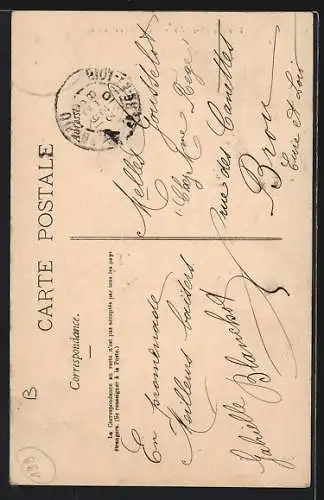 CARTE POSTALE
Correspondance.
La Correspondance au recto n'est pas acceptée par tous les pays
étrangers. (Se renseigner à la Poste.)
En promenade
Meilleurs baisers
Gabrielle Blanchot
Melles Gousselot
rue des Canettes
Brou
Eure et Loir
B